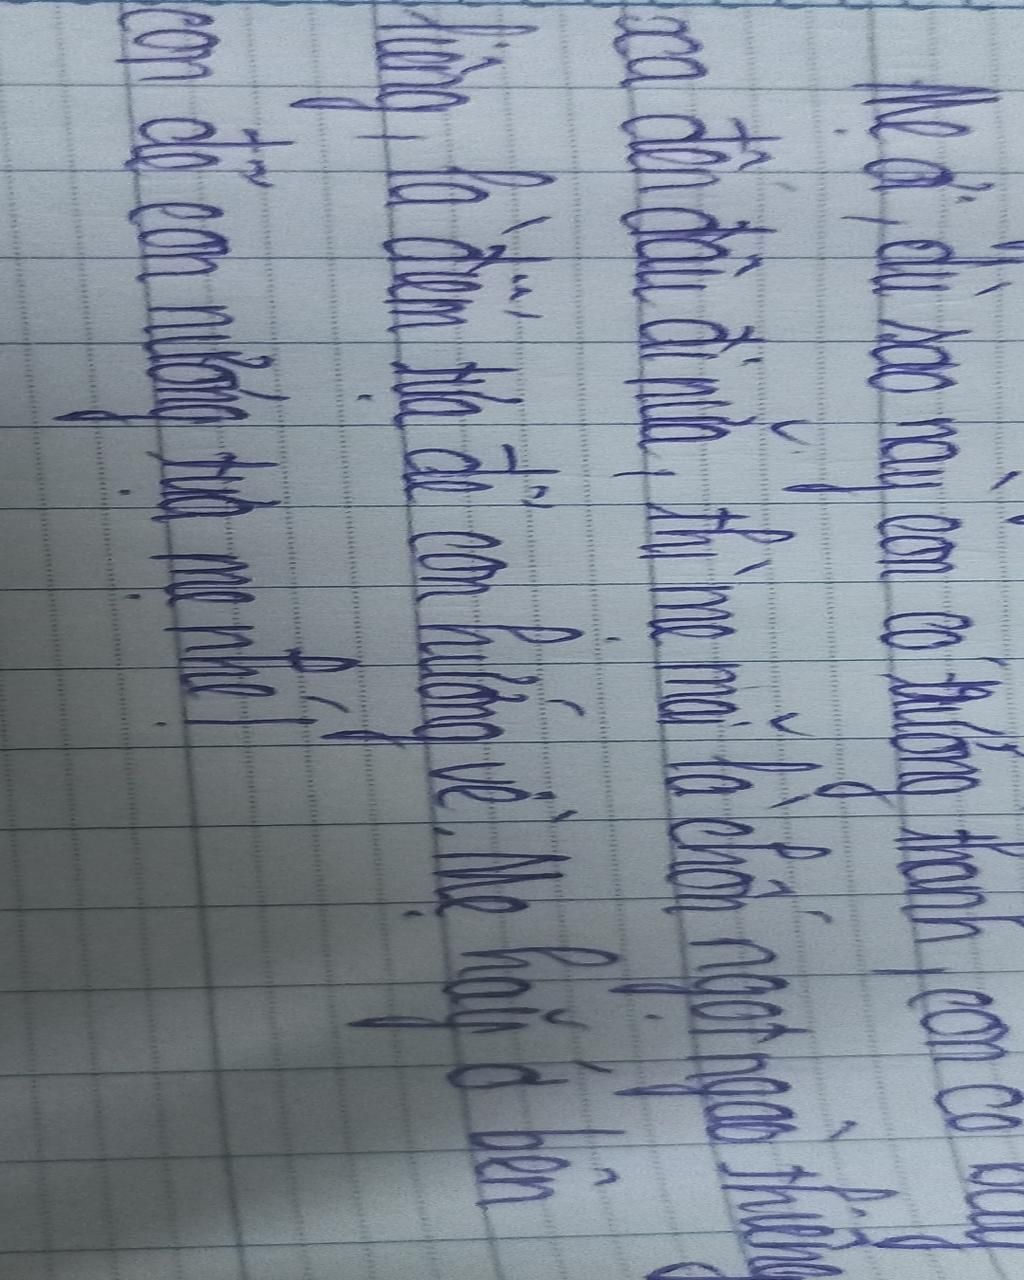 Mẹ ơi, dù sao này con có trưởng thành, con có
xa đến đâu đi nữa, thì mẹ mãi là chốn ngọt ngào thiêng
liêng, là điểm tựa để con hướng về. Mẹ hãy ở bên
con để con nương tựa mẹ nhé!